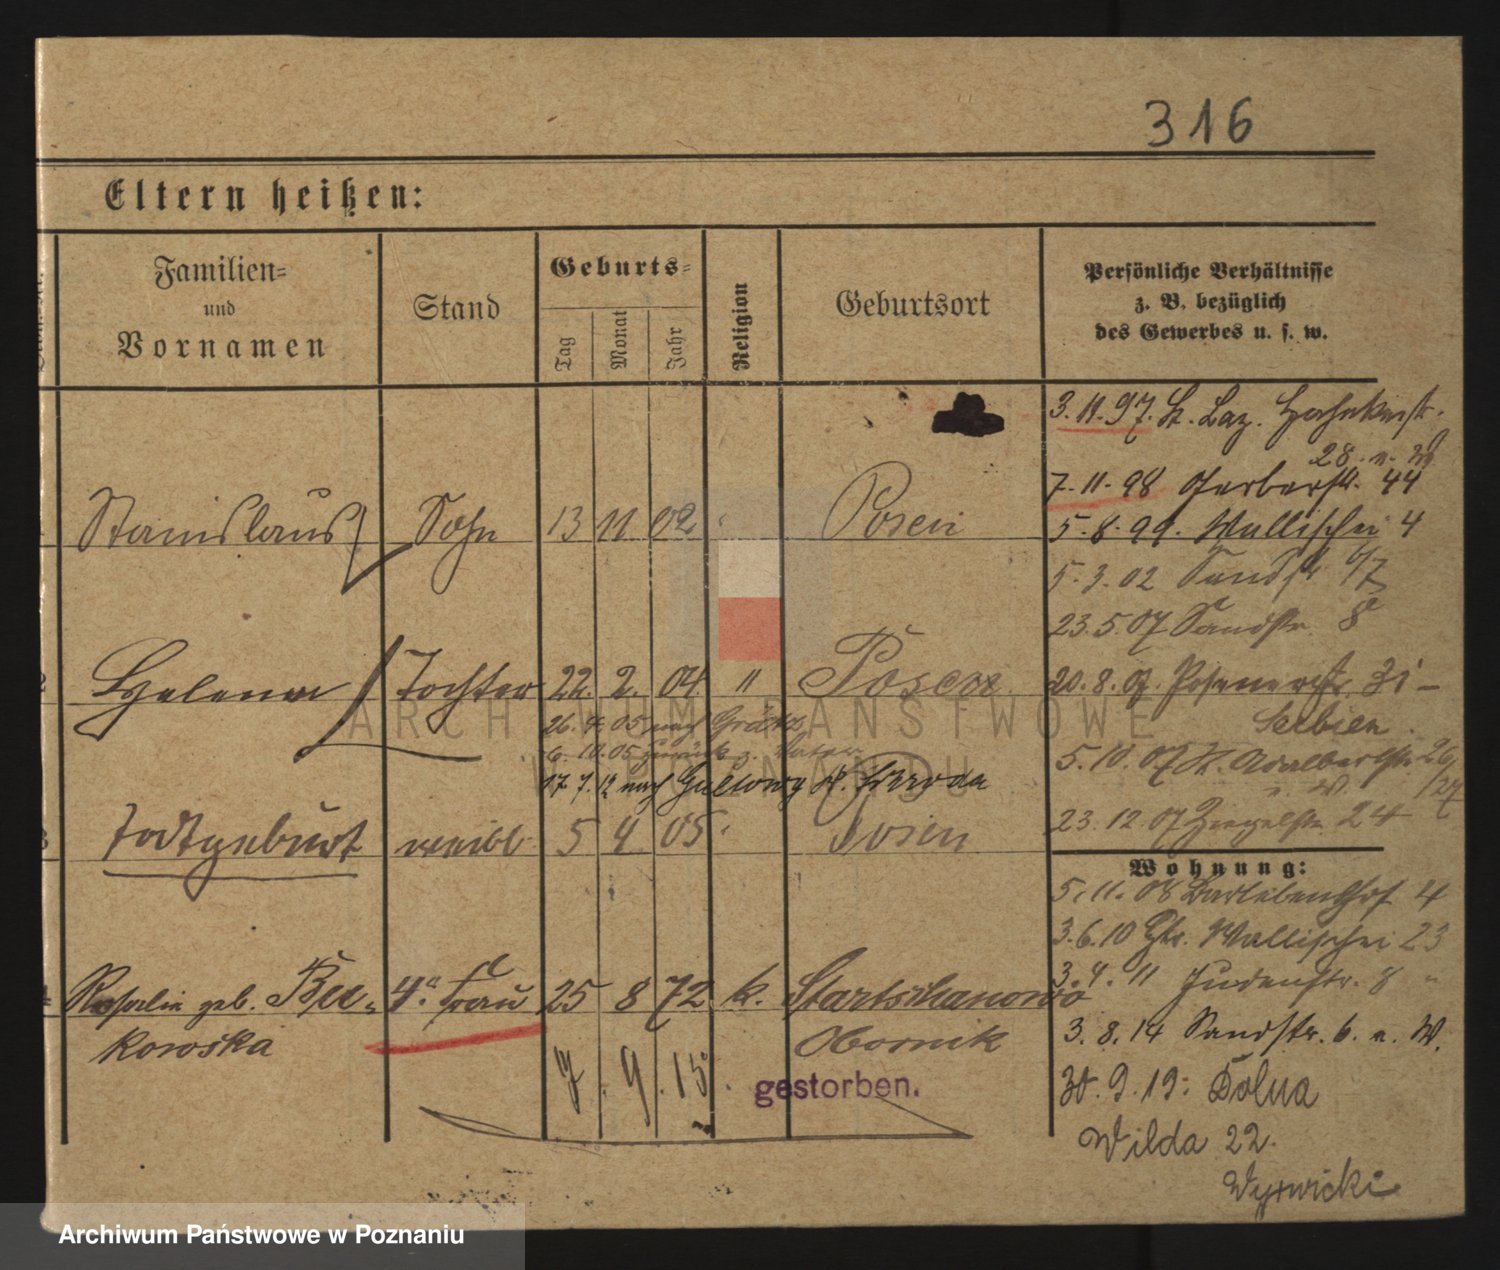 316
Eltern heißen:
Familien=
und
Vornamen
Stand
Geburts=
Tag
Monat
Jahr
Religion
Geburtsort
Persönliche Verhältnisse
z. B. bezüglich
des Gewerbes u. s. w.
3.11.97. St. Laz.
28. n. W
7.11.98 Gerberstr. 44
Stanislaus Sohn 13 11 02 Posen
5.8.99. Wallischei 4
5.3.02 Sandstr 6/7
23.5.07 Sandstr. 8
Helena Tochter 22. 2. 04 " Posen
20.8.07. Posenerstr. 31 -
26.4.05 nach Grätz
6.10.05 zurück z. Vater
Serbien.
17.7.12 nach Gultowy Kr. Schroda
5.10.07 St. Adalbertstr. 26/27
Todtgeburt weibl 5 4 05 Posen
23.12.07 Ziegelstr. 24
Wohnung:
5.11.08 Bartlebenshof 4
3.6.10 Gr. Wallischei 23
3.4.11 Judenstr. 8
Rosalie geb. Bu= 4." Frau 25 8 72 k. Startschanowo
kowska Obornik
3.8.14 Sandstr. 6. n. W.
7. 9. 15. gestorben.
30.9.19: Dolna
Wilda 22.
Wyrwicki
ARCHIWUM PAŃSTWOWE
W POZNANIU
Archiwum Państwowe w Poznaniu